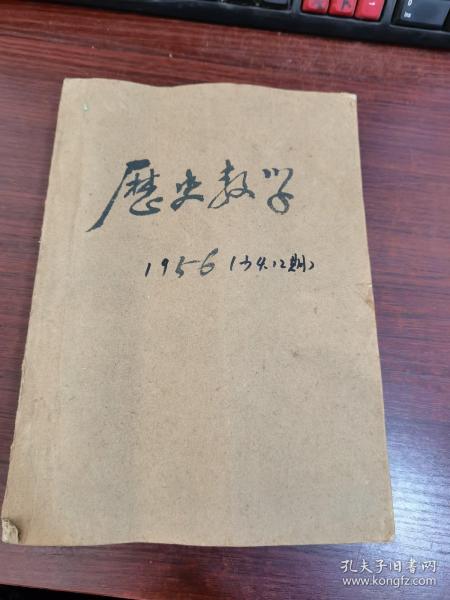 歷史教学
1956
孔夫子旧书网
www.kongfz.com